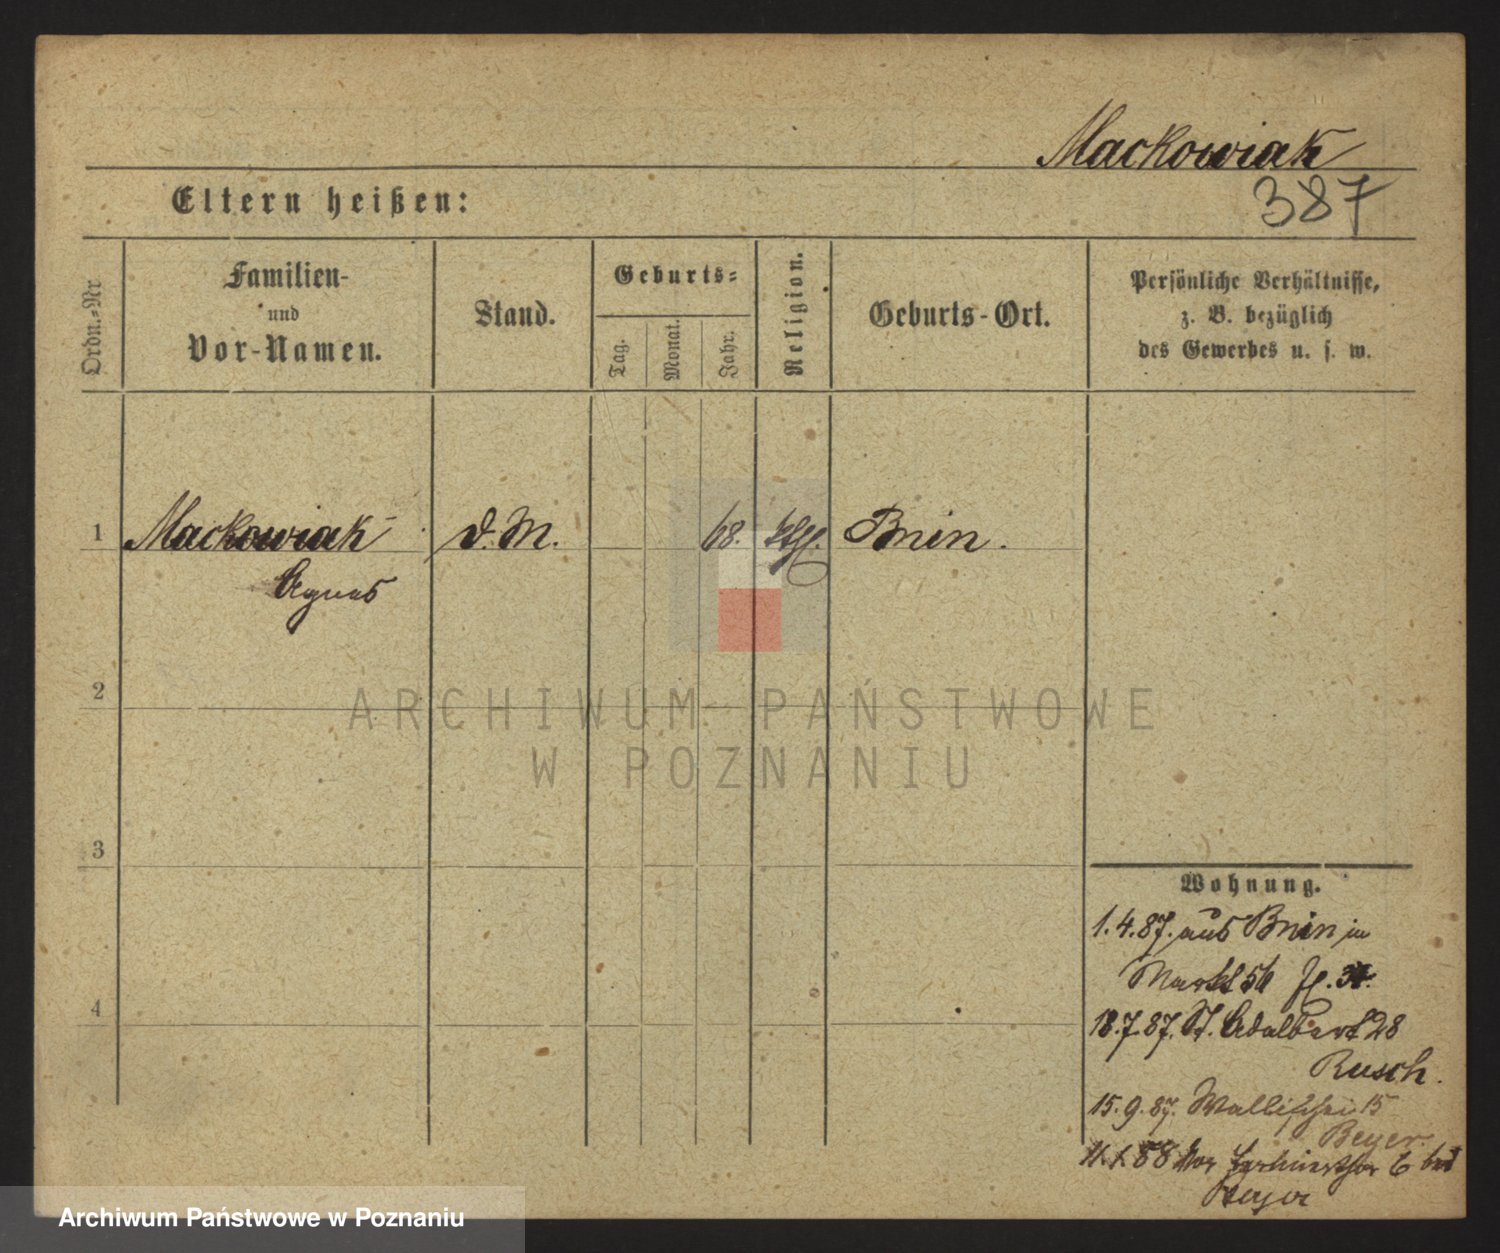 Mackowiak
387
Eltern heißen:
Ordn.-Nr
Familien-
und
Vor-Namen.
Stand.
Geburts-
Tag.
Monat.
Jahr.
Religion.
Geburts-Ort.
Persönliche Verhältnisse,
z. B. bezüglich
des Gewerbes u. s. w.
1
Mackowiak
Agnes
d. M.
68.
kth.
Bnin.
2
ARCHIWUM PAŃSTWOWE
W POZNANIU
3
4
Wohnung.
1.4.87. aus Bnin in
Markt 56
18.7.87. St. Adalbert 28
Rusch.
15.9.87. Wallischei 15
Beyer.
88 Vor 6 bei
Beyer
Archiwum Państwowe w Poznaniu